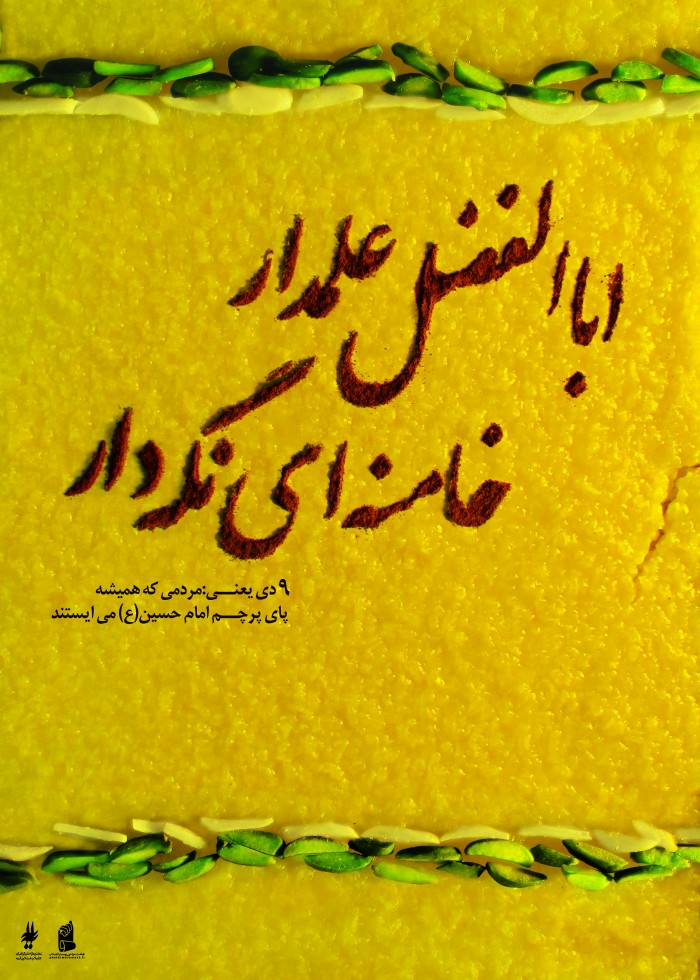 اباالفضل علمدار
خامنه ای نگه دار
۹ دی یعنی: مردمی که همیشه
پای پرچم امام حسین(ع) می ایستند